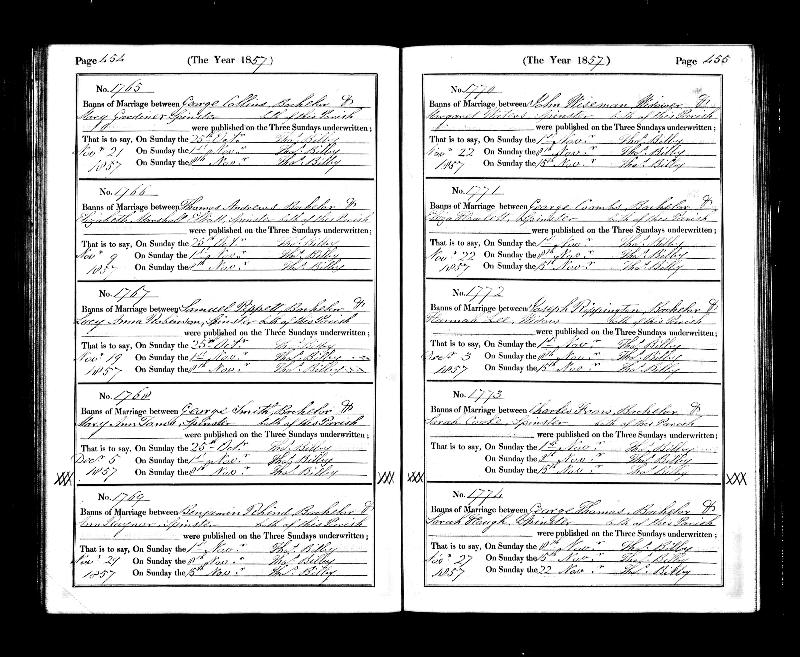 Page 454 (The Year 1857)
No. 1765
Banns of Marriage between George Collins, Bachelor &
Mary Gardener Spinster both of this Parish
were published on the Three Sundays underwritten;
That is to say, On Sunday the 25th Octr Thos. Bilby
Novr 21 On Sunday the 1st Novr Thos. Bilby
1857 On Sunday the 8th Novr Thos. Bilby
No. 1766
Banns of Marriage between Thomas Andrews Bachelor &
Elizabeth Spinster both of this Parish
were published on the Three Sundays underwritten;
That is to say, On Sunday the 25th Octr Thos. Bilby
Novr 9 On Sunday the 1st Novr Thos. Bilby
1857 On Sunday the 8th Novr Thos. Bilby
No. 1767
Banns of Marriage between Samuel Bachelor &
Lucy Anna Robinson, Spinster both of this Parish
were published on the Three Sundays underwritten;
That is to say, On Sunday the 25th Octr Thos. Bilby
Novr 19 On Sunday the 1st Novr Thos. Bilby
1857 On Sunday the 8th Novr Thos. Bilby
No. 1768
Banns of Marriage between George Smith, Bachelor &
Mary Ann Spinster both of this Parish
were published on the Three Sundays underwritten;
That is to say, On Sunday the 25th Octr Thos. Bilby
Decr 5 On Sunday the 1st Novr Thos. Bilby
1857 On Sunday the 8th Novr Thos. Bilby
No. 1769
Banns of Marriage between Benjamin Bachelor &
Ann Spinster both of this Parish
were published on the Three Sundays underwritten;
That is to say, On Sunday the 1st Novr Thos. Bilby
Novr 21 On Sunday the 8th Novr Thos. Bilby
1857 On Sunday the 15th Novr Thos. Bilby
(The Year 1857) Page 455
No. 1770
Banns of Marriage between John Wiseman Widower &
Margaret Spinster both of this Parish
were published on the Three Sundays underwritten;
That is to say, On Sunday the 1st Novr Thos. Bilby
Novr 22 On Sunday the 8th Novr Thos. Bilby
1857 On Sunday the 15th Novr Thos. Bilby
No. 1771
Banns of Marriage between George Coombs Bachelor &
Eliza Spinster both of this Parish
were published on the Three Sundays underwritten;
That is to say, On Sunday the 1st Novr Thos. Bilby
Novr 22 On Sunday the 8th Novr Thos. Bilby
1857 On Sunday the 15th Novr Thos. Bilby
No. 1772
Banns of Marriage between Joseph Rippington, Bachelor &
Hannah Lee, Widow both of this Parish
were published on the Three Sundays underwritten;
That is to say, On Sunday the 1st Novr Thos. Bilby
Decr 3 On Sunday the 8th Novr Thos. Bilby
1857 On Sunday the 15th Novr Thos. Bilby
No. 1773
Banns of Marriage between Charles Bachelor &
Sarah Spinster both of this Parish
were published on the Three Sundays underwritten;
That is to say, On Sunday the 1st Novr Thos. Bilby
On Sunday the 8th Novr Thos. Bilby
On Sunday the 15th Novr Thos. Bilby
No. 1774
Banns of Marriage between George Thomas, Bachelor &
Sarah Spinster both of this Parish
were published on the Three Sundays underwritten;
That is to say, On Sunday the 8th Novr Thos. Bilby
Novr 27 On Sunday the 15th Novr Thos. Bilby
1857 On Sunday the 22 Novr Thos. Bilby